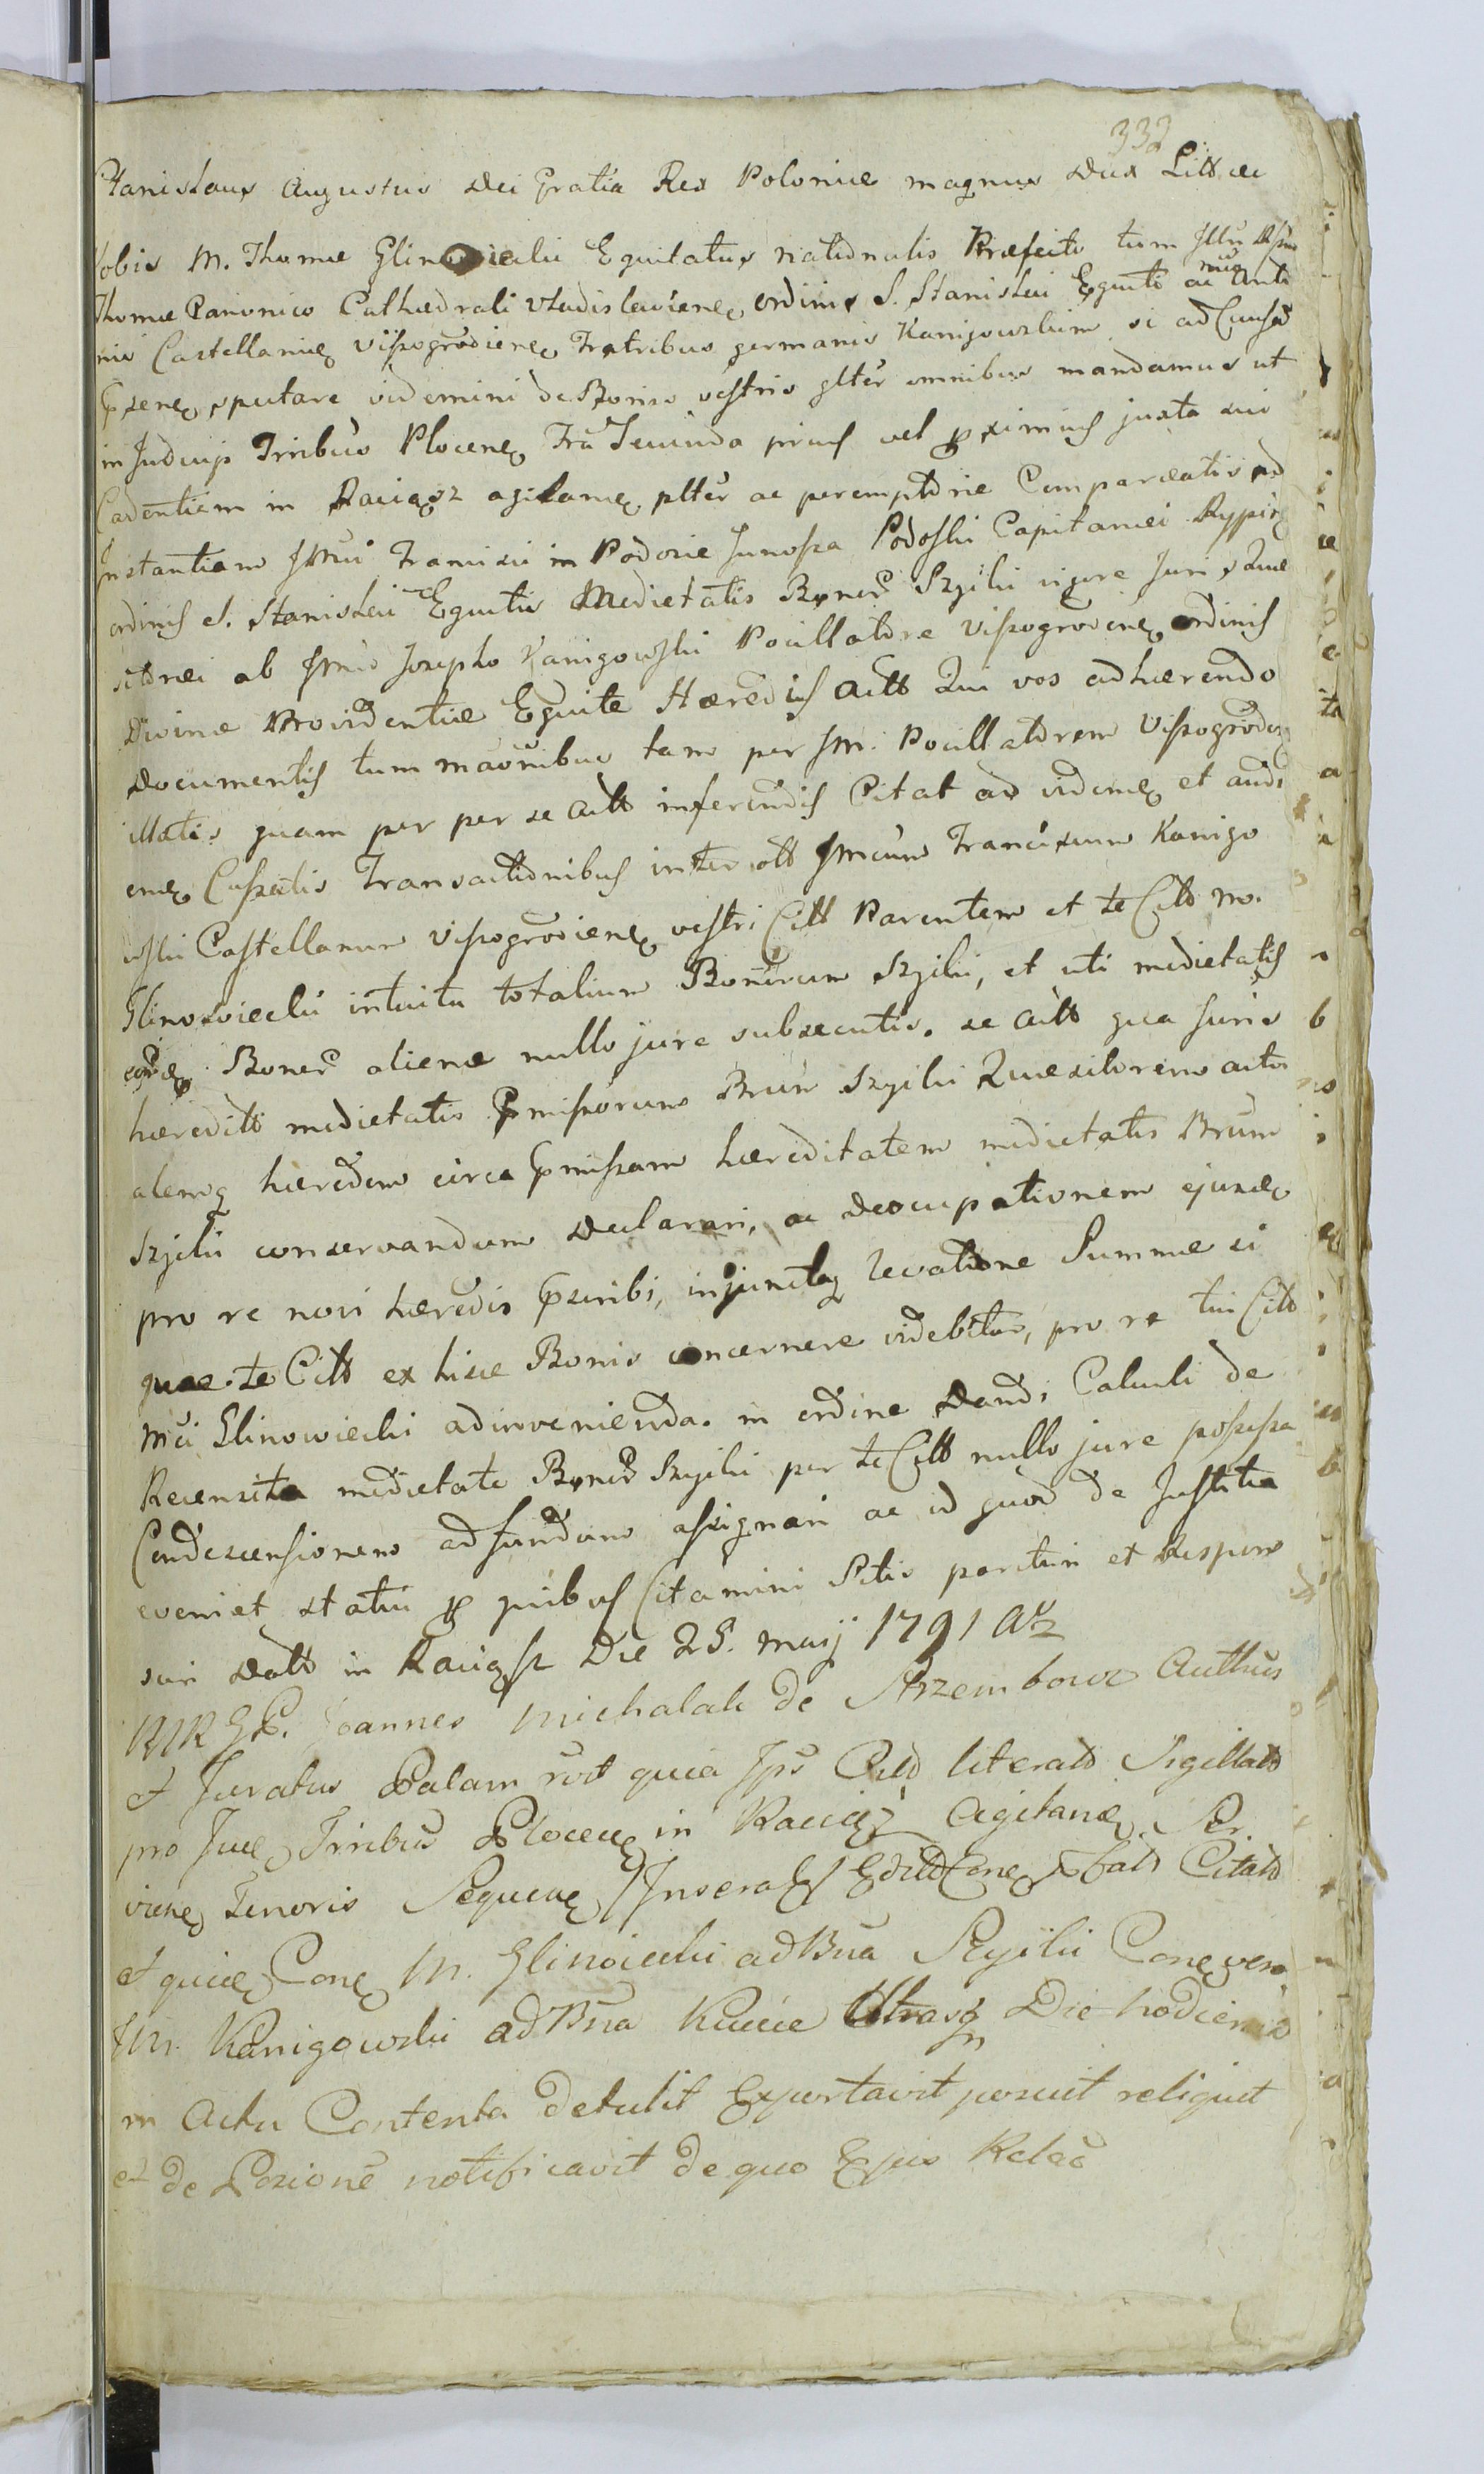 332
Stanislaus Augustus Dei Gratia Rex Poloniæ magnus Dux Litt æc
Vobis M. Thomæ Glinowiecki Equitatus nationalis Præfecto tum Illu
Thomæ Canonico Cathedrali Vladislaviene ordinis S. Stanislai Equiti ac Anto
niæ
nio Castellaniæ Viszogrodiene Fratribus germanis Kanigowskim si ad Causã
spectare videmini de Bonis vestris glter omnibus mandamus ut
in Judicijs Trribus Plocene Fra Secunda prius vel pximius juxta sui
Cadentiam in Raciąsz agitane plter ac peremptorie Compareatis ad
Instantiam Francisci in Podosie Junosza Podoski Capitanei Rypis
ordinis S. Stanislai Equitis Medietatis Boner Szyiki vigore Juris Quæ
sitorei ab Josepho Kanigowski Pocillatore Viszogrodene ordinis
Divinæ Providentiæ Equite Hæredis Actt Qui vos adhærendo
Documentis tum maonibus tam per Jm. Pocillatorem Viszogrodens
illatis quam per per se Actt inferendis Citat ad videne et audi
ene Cassatis Transactionibus inter ott Franciscum Kanigo
wski Castellanum Viszogrodiene vestri Citt Parentem et te Citt M.
Glinowiecki intuitu totalium Bonorum Szyiki, et uti medietatis
Boner alienæ nullo jure subsecutis. se Actt qua Juris
hæreditt medietatis Pmissorum Bnrum Szyiki Quæsitorem actu
alemq hæredem circa Pmissam hæreditatem medietatis Bnrum
Szyiki conservandum Declarari, ac Deocupationem ejusde
pro re novi hæredis Pscribi, injunctaq levatione Summæ si
quæ te Citt ex hisce Bonis concernere videbitur, pro re tui Citt
Mci Glinowiecki adinvenienda. in ordine Dandi Calculi de
Recensita medietate Boner Szyiki per te Citt nullo jure possessa
Condescensionem ad fundum assignari ac id quod de Justitia
eveniet statui p quibus Citamini Sitis parituri et Respon
suri Datt in Raciąsz Die 25. maij 1791 Ao
Joannes Michalak de Strzembowo Authus
et Juratus Palam rost quia Ips Citt literatt Sigillatt
pro Trribus Plocene in Raciąz Agitane Ser
viene Tenoris Sequene Citatt
et quide M. Glinoiecki ad Bna Szyiki vero
Jm. Kanigowski ad Bna Die hodierna
in Actu Contenta Detulit Exportavit posuit reliquit
et de Posione notificavit de quo Ejus Relaõ